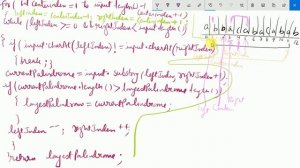 for( int centerIndex =1 to input length()-1
leftIndex = centerIndex-1; rightIndex = centerIndex+1;
while (leftIndex >= 0 && rightIndex < input length())
{ if ( input.charAt(leftIndex) != input.charAt(rightIndex)
{ break; }
currentPalindrome = input. substring (leftIndex, rightIndex+1).
if (currentPalindrome. length() > longestPalindrome length())
{ longestPalindrome = currentPalindrome;
}
leftIndex --; rightIndex ++;
}
return longestPalindrome;